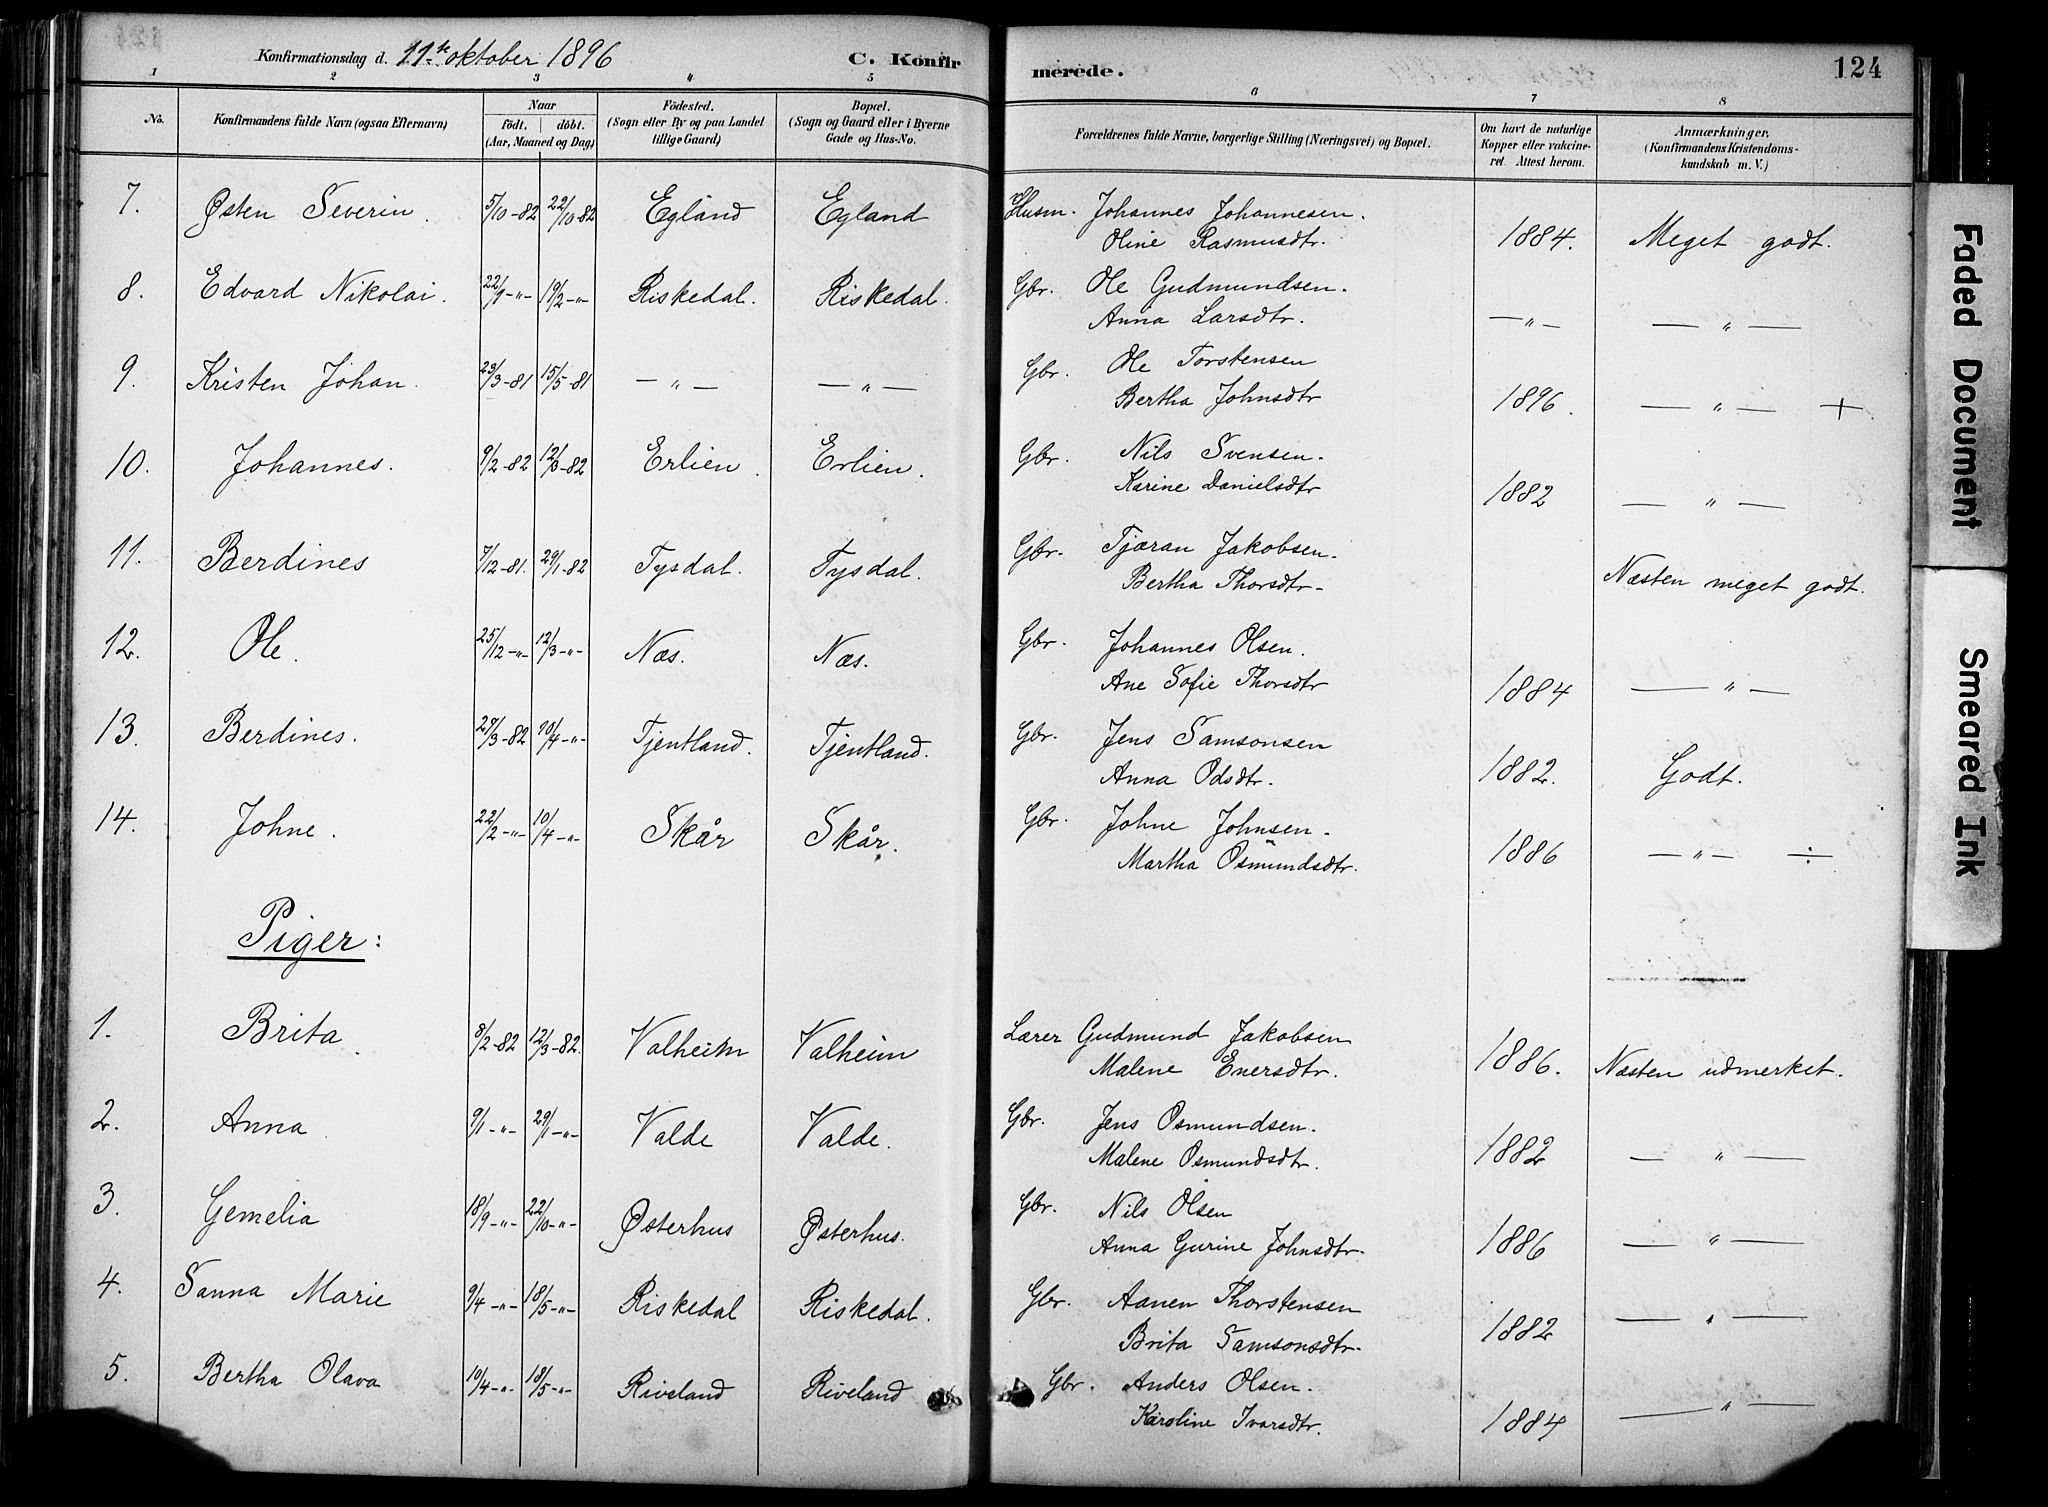 Konfirmationsdag d. 11te oktober 1896 C. Konfir merede. 124
1 2 3 4 5 6 7 8
No. Konfirmandens fulde Navn (ogsaa Efternavn)
Naar
født. døbt.
(Aar, Maaned og Dag)
Födested.
(Sogn eller By og paa Landet
tillige Gaard)
Bopæl.
(Sogn og Gaard eller i Byerne
Gade og Hus-No.
Forældrenes fulde Navne, borgerlige Stilling (Næringsvei) og Bopæl.
Om havt de naturlige
Kopper eller vakcine-
ret. Attest herom.
Anmærkninger.
(Konfirmandens Kristendoms-
kundskab m. V.)
7. Østen Severin. 5/10-82 22/10-82 Egland Egland Husm. Johannes Johannesen.
Oline Rasmusdtr. 1884. Meget godt.
8. Edvard Nikolai. 22/9-"- 19/2-"- Riskedal. Riskedal. Gbr. Ole Gudmundsen.
Anna Larsdtr. -"- -"-
9. Kristen Johan. 23/3-81 15/5-81 -"- -"- Gbr. Ole Torstensen
Bertha Johnsdtr 1896. -"- +
10. Johannes. 9/2-82 12/3-82 Erlien. Erlien. Gbr. Nils Svensen.
Karine Danielsdtr 1882 -"-
11. Berdines 7/12-81. 29/1-82 Tysdal. Tysdal. Gbr. Tjæran Jakobsen.
Bertha Thorsdtr. Næsten meget godt.
12. Ole. 25/12-"- 12/3-"- Næs. Næs. Gbr. Johannes Olsen.
Ane Sofie Thorsdtr 1884 -"-
13. Berdines. 27/3-82 10/4-"- Tjentland. Tjentland. Gbr. Jens Samsonsen
Anna Odsdtr. 1882. Godt.
14. Johne. 22/2-"- 10/4-"- Skår Skår. Gbr. Johne Johnsen.
Martha Osmundsdtr. 1886 -"- ÷
Piger:
1. Brita. 8/2-82 12/3-82. Valheim Valheim Lærer Gudmund Jakobsen
Malene Enersdtr. 1886. Næsten udmerket.
2. Anna 9/1-"- 29/1-"- Valde Valde. Gbr. Jens Osmundsen.
Malene Osmundsdtr. 1882 -"-
3. Gemelia 18/9-"- 22/10-"- Østerhus Østerhus. Gbr. Nils Olsen
Anna Gurine Johnsdtr. 1886 -"-
4. Sanna Marie 9/4-"- 18/5-"- Riskedal Riskedal. Gbr. Aanen Thorstensen
Brita Samsonsdtr. 1882 -"-
5. Bertha Olava 10/4-"- 18/5-"- Riveland Riveland Gbr. Anders Olsen.
Karoline Ivarsdtr. 1884 -"-
Faded Document
Smeared Ink